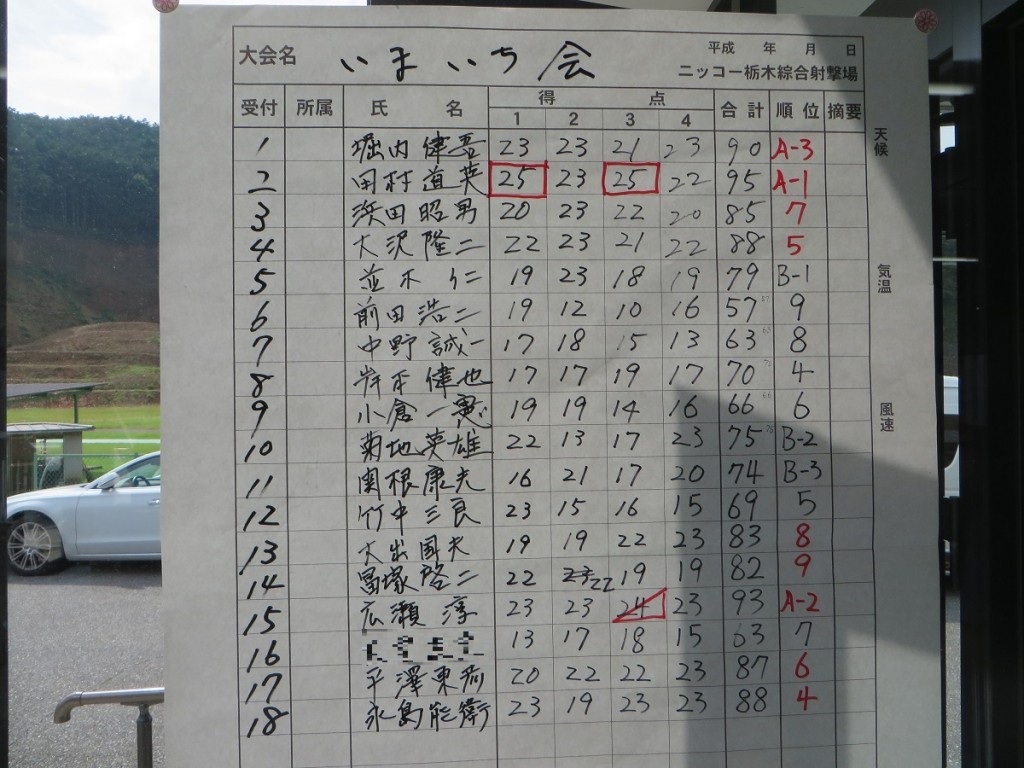 大会名 いまいち会 平成 年 月 日
ニッコー栃木綜合射撃場
受付 所属 氏 名 得 点 合計 順位 摘要
1 2 3 4
1 堀内健吾 23 23 21 23 90 A-3
2 田村道英 25 23 25 22 95 A-1
3 浜田昭男 20 23 22 20 85 7
4 大沢隆二 22 23 21 22 88 5
5 並木仁 19 23 18 19 79 B-1
6 前田浩二 19 12 10 16 57 9
7 中野誠一 17 18 15 13 63 8
8 岸本健也 17 17 19 17 70 4
9 小倉一憲 19 19 14 16 66 6
10 菊地英雄 22 13 17 23 75 B-2
11 関根康夫 16 21 17 20 74 B-3
12 竹中三良 23 15 16 15 69 5
13 大出国夫 19 19 22 23 83 8
14 冨塚啓二 22 23 22 19 19 82 9
15 広瀬淳 23 23 24 23 93 A-2
16 13 17 18 15 63 7
17 平澤東 20 22 22 23 87 6
18 永島能衛 23 19 23 23 88 4
天候
気温
風速